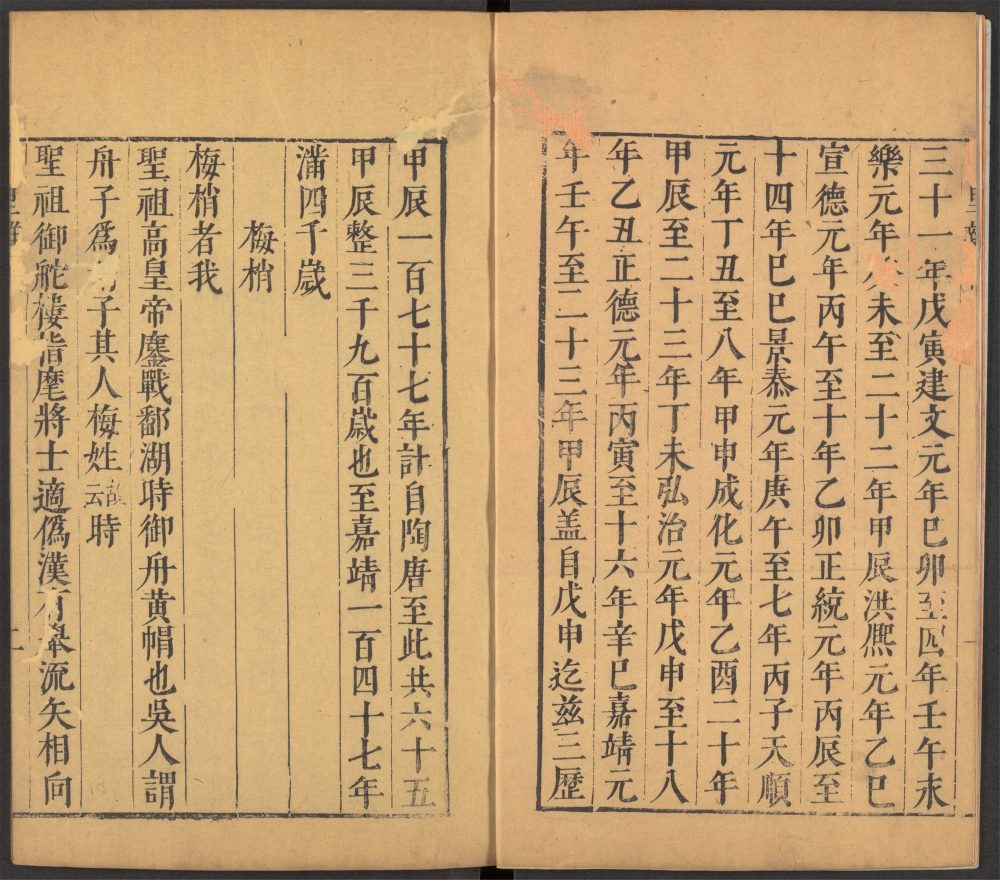 三十一年戊寅建文元年巳卯至四年壬午永
樂元年未至二十二年甲辰洪熈元年乙巳
宣德元年丙午至十年乙卯正統元年丙辰至
十四年巳巳景泰元年庚午至七年丙子天順
元年丁丑至八年甲申成化元年乙酉二十年
甲辰至二十三年丁未弘治元年戊申至十八
年乙丑正德元年丙寅至十六年辛巳嘉靖元
年壬午至二十三年甲辰盖自戊申迄兹三歷
甲辰一百七十七年計自陶唐至此共六十五
甲辰整三千九百歲也至嘉靖一百四十七年
滿四千歲
梅梢
梅梢者我
聖祖高皇帝鏖戰鄱湖時御舟黄帽也吳人謂
舟子爲子其人梅姓故云時
聖祖御舵樓指麾將士適僞漢有舉流矢相向
二